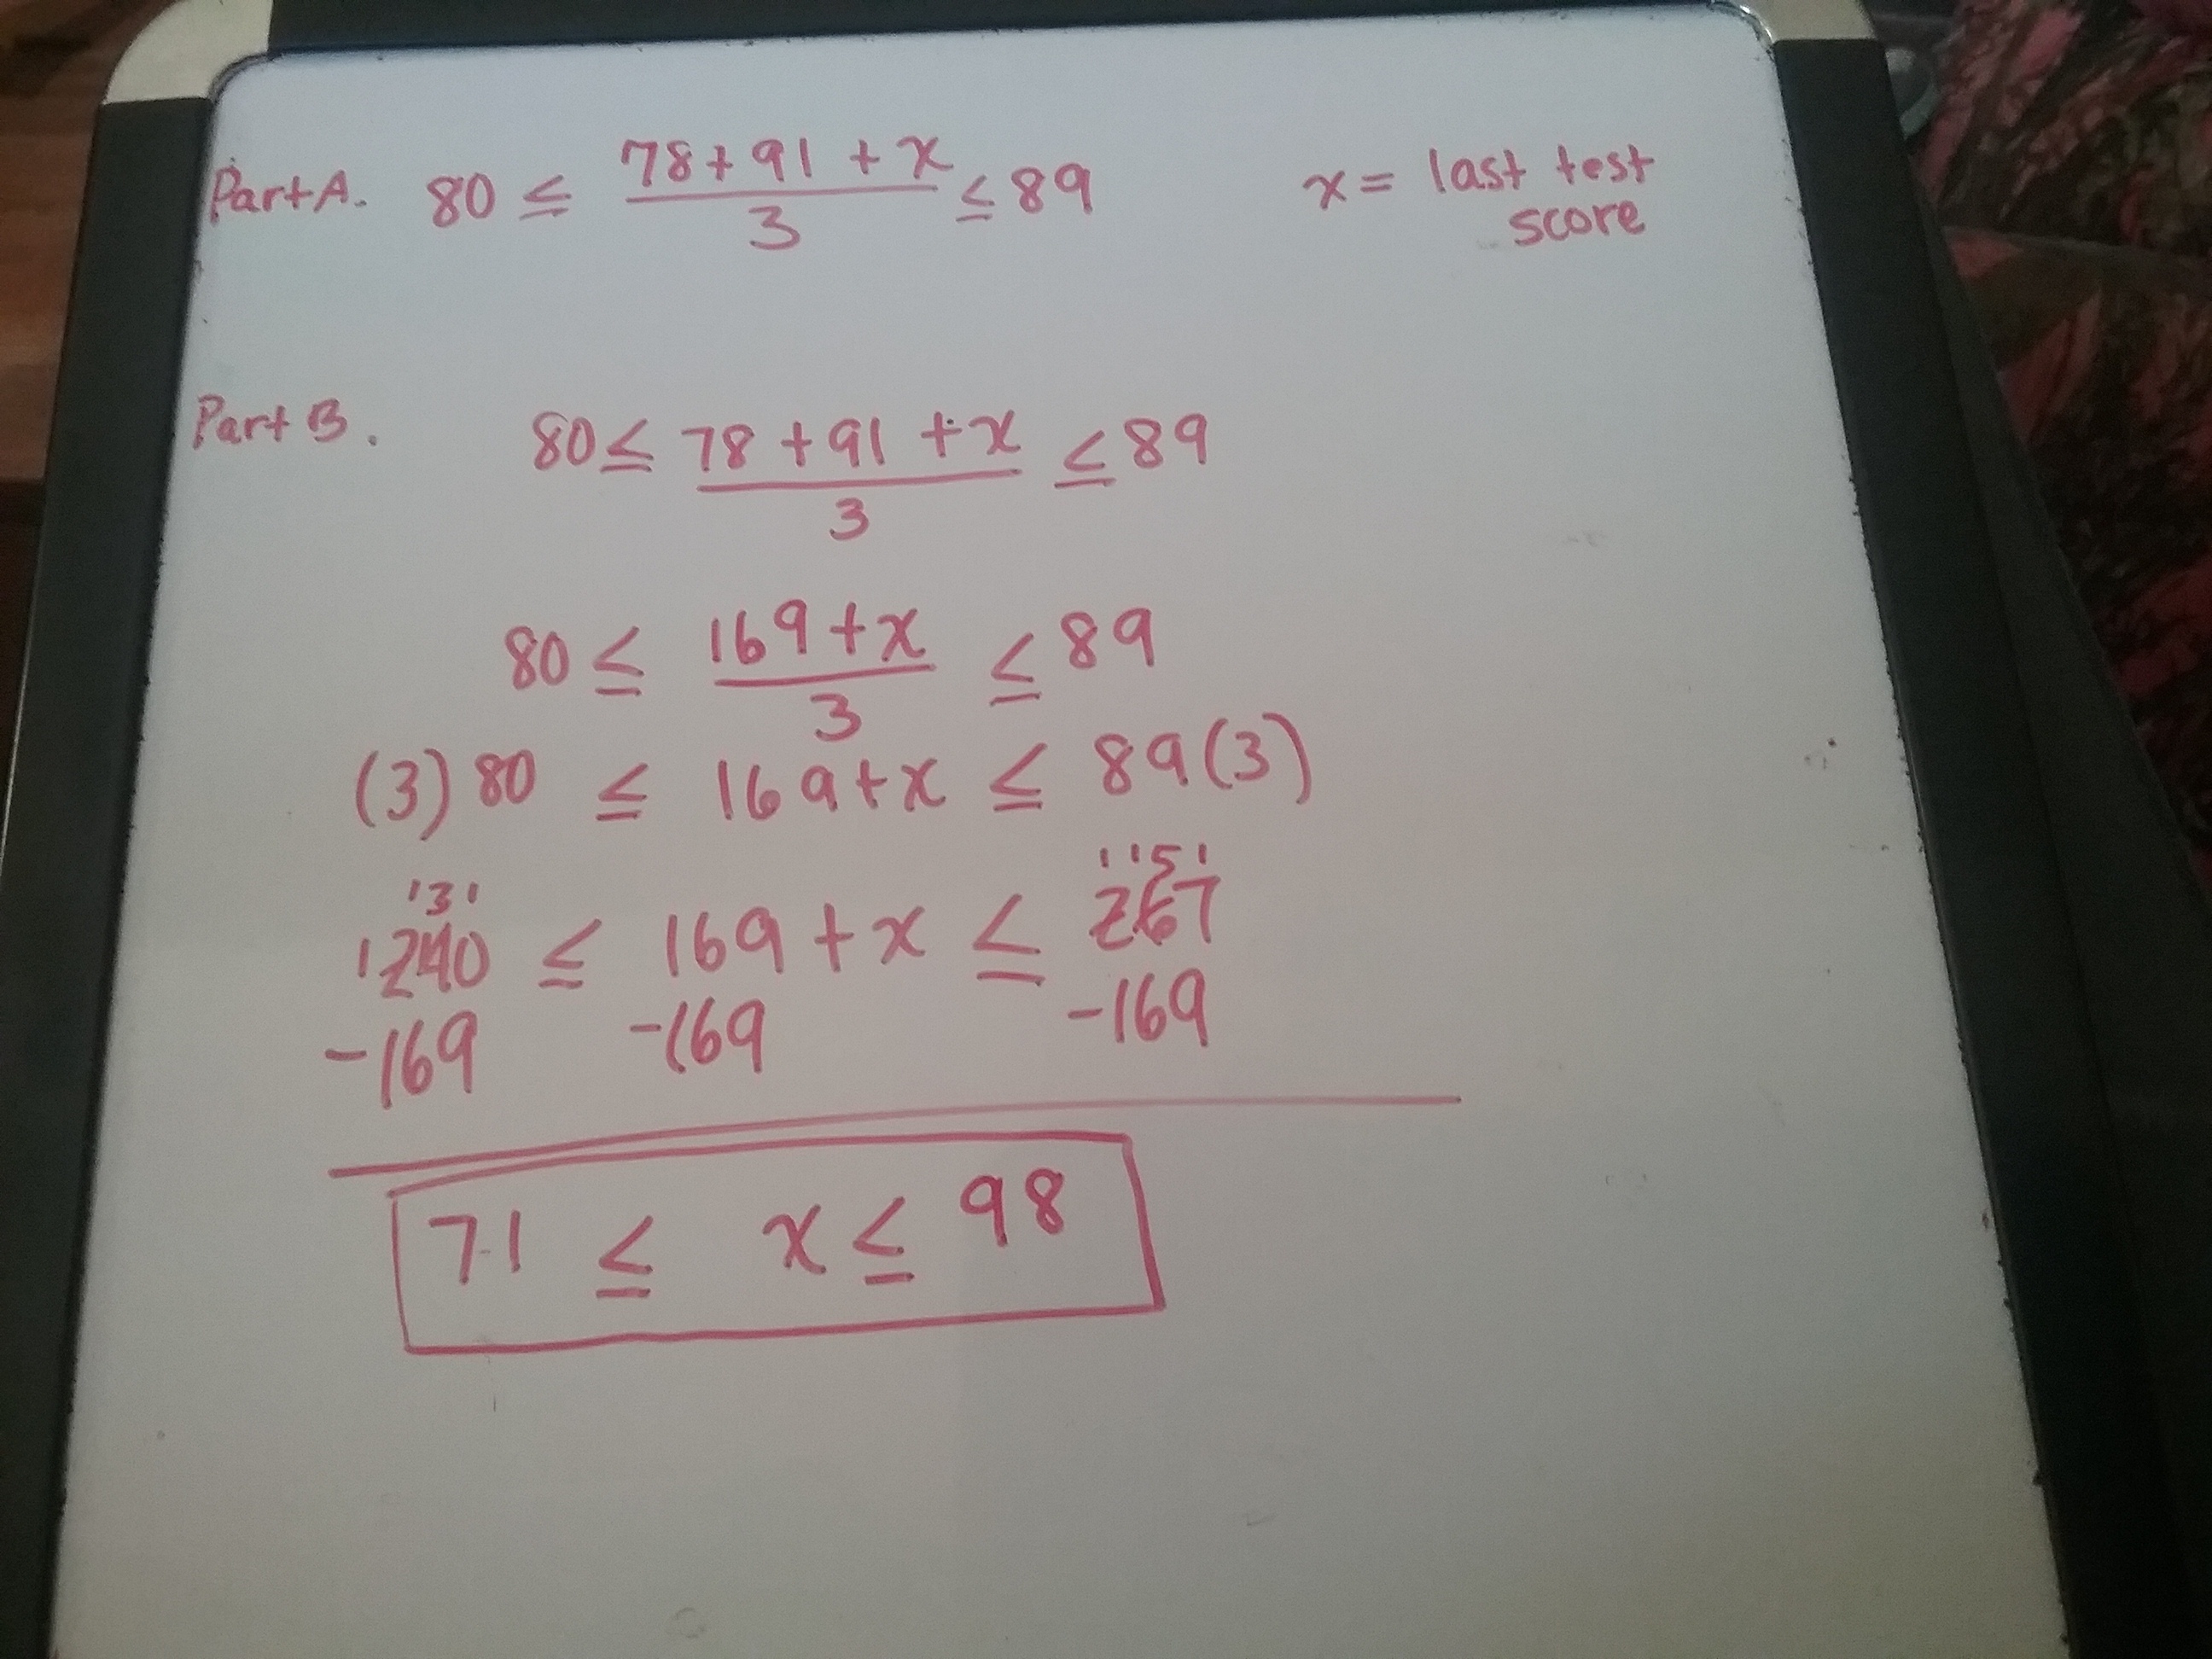 Part A. 80 ≤ (78 + 91 + x)/3 ≤ 89 x = last test
score
Part B. 80 ≤ (78 + 91 + x)/3 ≤ 89
80 ≤ (169 + x)/3 ≤ 89
(3) 80 ≤ 169 + x ≤ 89 (3)
1 3 1 1 1 5 1
1 240 ≤ 169 + x ≤ 267
-169 -169 -169
71 ≤ x ≤ 98